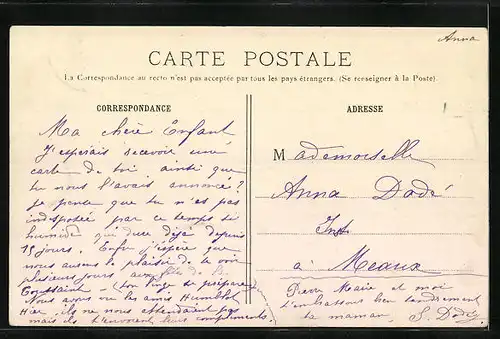 Anna
CARTE POSTALE
La Correspondance au recto n'est pas acceptée par tous les pays étrangers. (Se renseigner à la Poste)
CORRESPONDANCE
Ma chère Enfant
J'espérais recevoir une
carte de toi ainsi que
tu nous l'avais annoncé ?
Je pense que tu n'es pas
indisposée par ce temps si
humide qui dure déjà depuis
15 jours. Enfin j'espère que
nous aurons le plaisir de te voir
plusieurs jours aux fête de la
Toussaint - (ton linge se prépare)
Nous avons vu les amis Humblot
Hier, ils ne nous attendaient pas
mais ils t'envoient leurs compliments.
ADRESSE
Mademoiselle
Anna Dodé
Inst
à Meaux
Pierre Marie et moi
t'embrassons bien tendrement
ta maman, S. Dodé